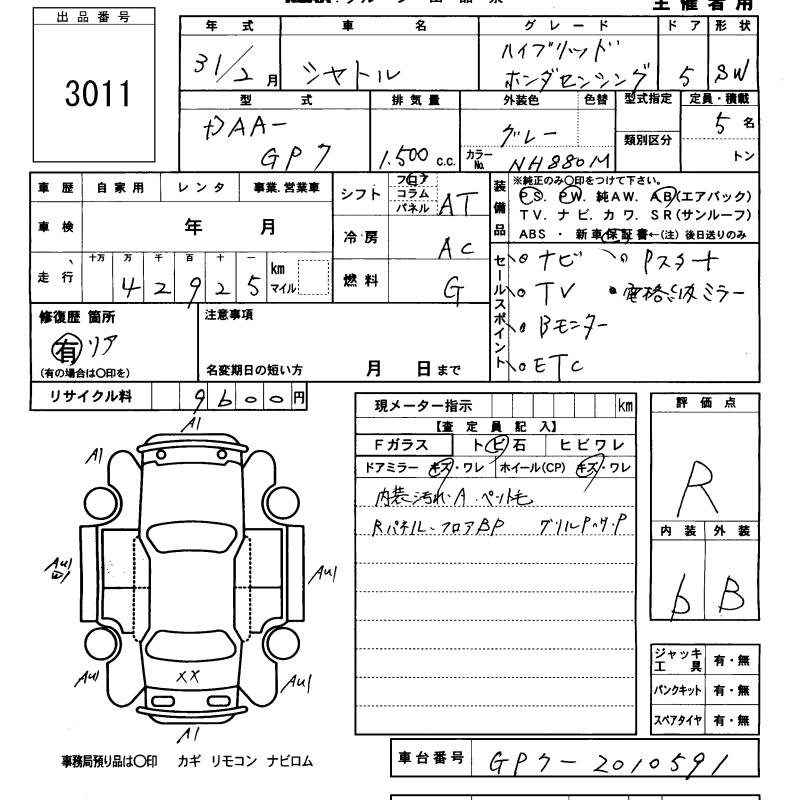 出品番号
3011
主催者用
年式 車名 グレード ドア 形状
31/2月 シャトル ハイブリッド ホンダセンシング 5 SW
型式 排気量 外装色 色替 型式指定 定員・積載
DAA- GP7 1.500 c.c. グレー 5名
カラーNo. NH880M 類別区分 トン
車歴 自家用 レンタ 事業.営業車
車検 年 月
走行 十万 万 千 百 十 一
4 2 9 2 5 km マイル
シフト フロア コラム パネル AT
冷房 AC
燃料 G
装備品
※純正のみ〇印をつけて下さい。
PS. PW. 純AW. AB(エアバック)
TV. ナビ. カワ. SR(サンルーフ)
ABS ・ 新車保証書←(注) 後日送りのみ
セールスポイント
ナビ Pスタート
TV 電格ミラー
Bモニター
ETC
修復歴 箇所
有 リア
(有の場合は〇印を)
注意事項
名変期日の短い方 月 日まで
リサイクル料 9600円
現メーター指示 km
【査定員記入】
Fガラス トビ石 ヒビワレ
ドアミラー キズ・ワレ ホイール(CP) キズ・ワレ
内装汚れ・A ペット毛
Rパネル・フロアBP グリルPッケ・P
評価点
R
内装 外装
b B
A1
A1
AU1
AU1
AU1
AU1
XX
A1
ジャッキ工具 有・無
パンクキット 有・無
スペアタイヤ 有・無
事務局預り品は〇印 カギ リモコン ナビロム
車台番号 GP7-2010591